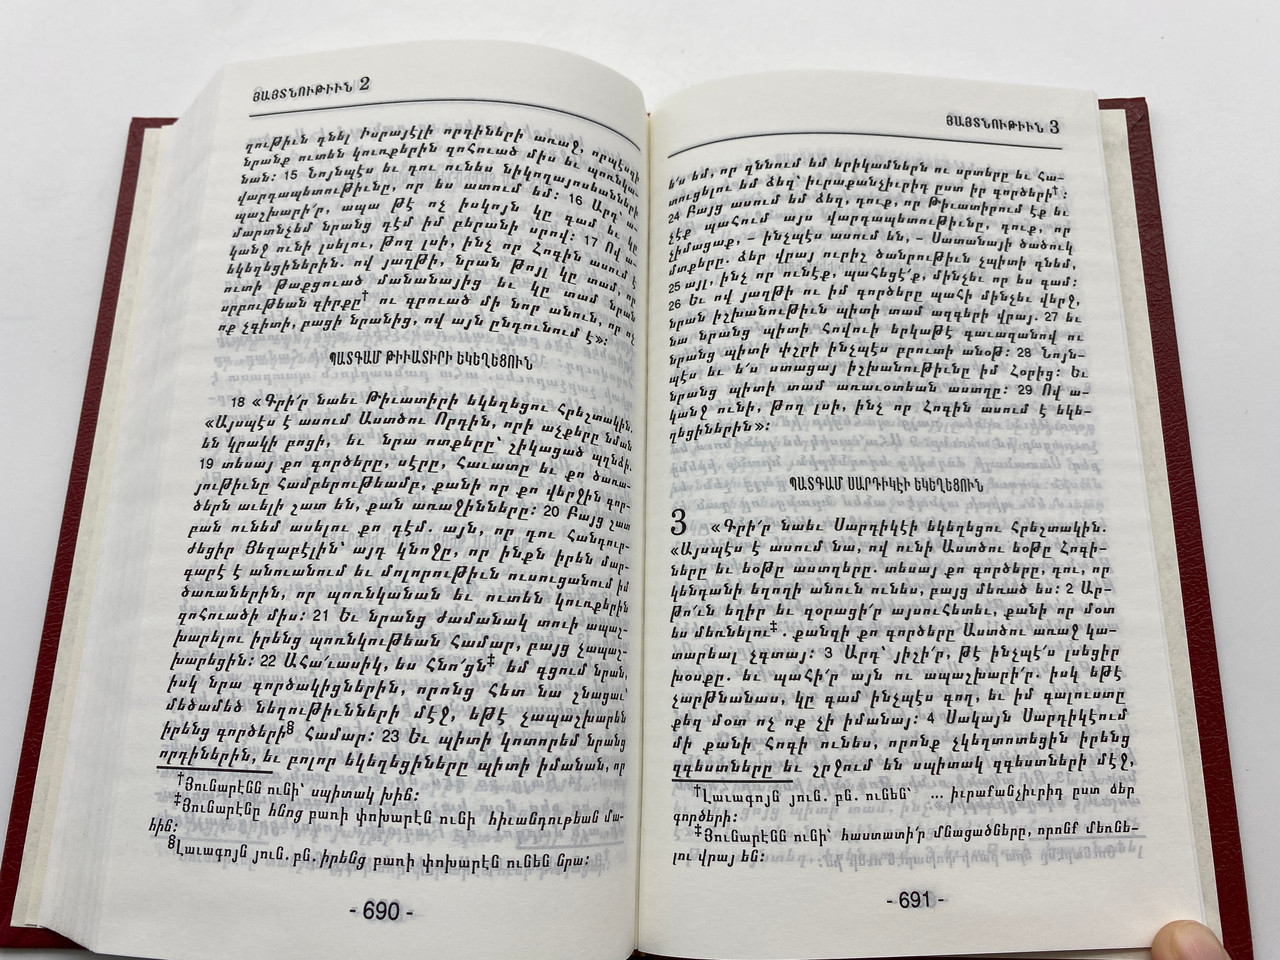 ՅԱՅՏՆՈՒԹԻՒՆ 2
ղութիւն դնել Իսրայէլի որդիների առաջ, որպէսզի
նրանք ուտեն կուռքերին զոհուած միս եւ պոռնկա-
նան: 15 Նոյնպէս եւ դու ունես նիկողայոսեանների
վարդապետութիւնը, որ ես ատում եմ: 16 Արդ՝ ա-
պաշխարի՛ր, ապա թէ ոչ իսկոյն կը գամ եւ կը
մարտնչեմ նրանց դէմ իմ բերանի սրով: 17 Ով ա-
կանջ ունի լսելու, թող լսի, ինչ որ Հոգին ասում է
եկեղեցիներին. ով յաղթի, նրան թոյլ կը տամ, որ
ուտի թաքցուած մանանայից եւ կը տամ նրան
սրբութեան գիրքը† ու գրուած մի նոր անուն, որ ոչ
ոք չգիտի, բացի նրանից, ով այն ընդունում է»:
ՊԱՏԳԱՄ ԹԻՒԱՏԻՐԻ ԵԿԵՂԵՑՈՒՆ
18 «Գրի՛ր նաեւ Թիւատիրի եկեղեցու հրեշտակին.
«Այսպէս է ասում Աստծու Որդին, որի աչքերը նման
են կրակի բոցի, եւ նրա ոտքերը՝ շիկացած պղնձի.
19 տեսայ քո գործերը, սէրը, հաւատը եւ քո ծառա-
յութիւնը համբերութեամբ, քանի որ քո վերջին գոր-
ծերն աւելի շատ են, քան առաջինները: 20 Բայց շատ
բան ունեմ ասելու քո դէմ. այն, որ դու հանդուր-
ժեցիր Յեզաբէլին՝ այդ կնոջը, որ ինքն իրեն մար-
գարէ է անուանում եւ մոլորութիւն ուսուցանում իմ
ծառաներին, որ պոռնկանան եւ ուտեն կուռքերին
զոհուածի միս: 21 Եւ նրանց ժամանակ տուի ապաշ-
խարելու իրենց պոռնկութեան համար, բայց չապաշ-
խարեցին: 22 Ահա՛ւասիկ, ես հնո՛ցն‡ եմ գցում նրան,
իսկ նրա գործակիցներին, որոնց հետ նա շնացաւ՝
մեծամեծ նեղութիւնների մէջ, եթէ չապաշխարեն
իրենց գործերի§ համար: 23 Եւ պիտի կոտորեմ նրանց
որդիներին, եւ բոլոր եկեղեցիները պիտի իմանան, որ
†Յունարէնն ունի՝ սպիտակ խիճ:
‡Յունարէնը հնոց բառի փոխարէն ունի հիւանդութեան մա-
հիճ:
§Լաւագոյն յուն. բն. իրենց բառի փոխարէն ունեն նրա:
- 690 -
ՅԱՅՏՆՈՒԹԻՒՆ 3
ե՛ս եմ, որ քննում եմ երիկամներն ու սրտերը եւ հա-
տուցելու եմ ձեզ՝ իւրաքանչիւրիդ ըստ իր գործերի†:
24 Բայց ասում եմ ձեզ, դուք, որ Թիւատիրում էք եւ
չէք պահում այս վարդապետութիւնը, դուք, որ
չիմացաք, – ինչպէս ասում են, – Սատանայի ծածուկ
մտքերը. ձեր վրայ ուրիշ ծանրութիւն չպիտի դնեմ,
25 այլ, ինչ որ ունէք, պահեցէ՛ք, մինչեւ որ ես գամ:
26 Եւ ով յաղթի ու իմ գործերը պահի մինչեւ վերջ,
նրան իշխանութիւն պիտի տամ ազգերի վրայ. 27 եւ
նա նրանց պիտի հովուի երկաթէ գաւազանով ու
նրանց պիտի փշրի ինչպէս բրուտի անօթ: 28 Նոյն-
պէս եւ ե՛ս ստացայ իշխանութիւնը իմ Հօրից: Եւ
նրանց պիտի տամ առաւօտեան աստղը: 29 Ով ա-
կանջ ունի, թող լսի, ինչ որ Հոգին ասում է եկե-
ղեցիներին»:
ՊԱՏԳԱՄ ՍԱՐԴԻԿԷԻ ԵԿԵՂԵՑՈՒՆ
3 «Գրի՛ր նաեւ Սարդիկէի եկեղեցու հրեշտակին.
«Այսպէս է ասում նա, ով ունի Աստծու եօթը Հոգի-
ները եւ եօթը աստղերը. տեսայ քո գործերը, դու, որ
կենդանի եղողի անուն ունես, բայց մեռած ես: 2 Ար-
թո՛ւն եղիր եւ զօրացի՛ր այսուհետեւ, քանի որ մօտ
ես մեռնելու‡. քանզի քո գործերը Աստծու առաջ կա-
տարեալ չգտայ: 3 Արդ՝ յիշի՛ր, թէ ինչպէ՛ս լսեցիր
խօսքը. եւ պահի՛ր այն ու ապաշխարի՛ր. իսկ եթէ
չարթնանաս, կը գամ ինչպէս գող, եւ իմ գալուստը
քեզ մօտ ոչ ոք չի իմանայ: 4 Սակայն Սարդիկէում
մի քանի հոգի ունես, որոնք չկեղտոտեցին իրենց
զգեստները եւ շրջում են սպիտակ զգեստների մէջ,
†Լաւագոյն յուն. բն. ունեն՝ ... իւրաքանչիւրիդ ըստ ձեր
գործերի:
‡Յունարէնն ունի՝ հաստատի՛ր մնացածները, որոնք մեռնե-
լու վրայ են:
- 691 -